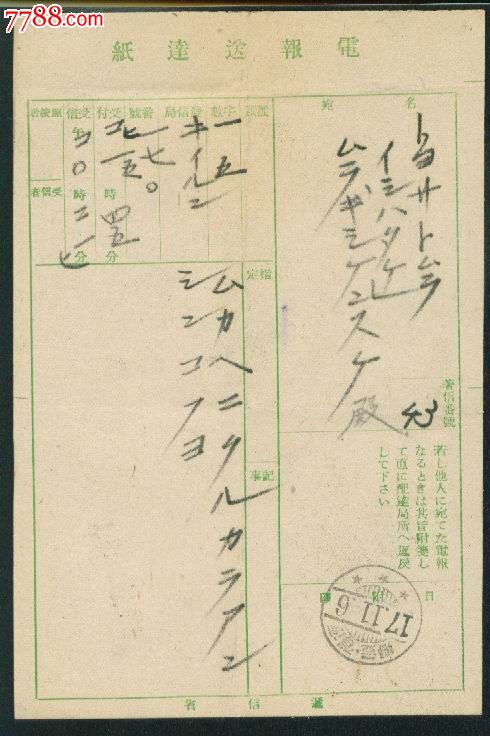 7788.com
電報送達紙
宛名
トヨサトムラ
イシハタケ
ムラギシケンスケ 殿
著信番號
43
若し他人に宛てた電報
なるときは其旨附箋し
て直に配達局所へ返戻
して下さい
日附印
17.11.6
字數
一五
發信局
キイルン
番號
七〇
受付
コヒ
一五時
四五分
受信
コ〇時
二七分
照校者
受信者
指定
記事
ムカヘニクルカラアン
シンコフヨ
遞信省